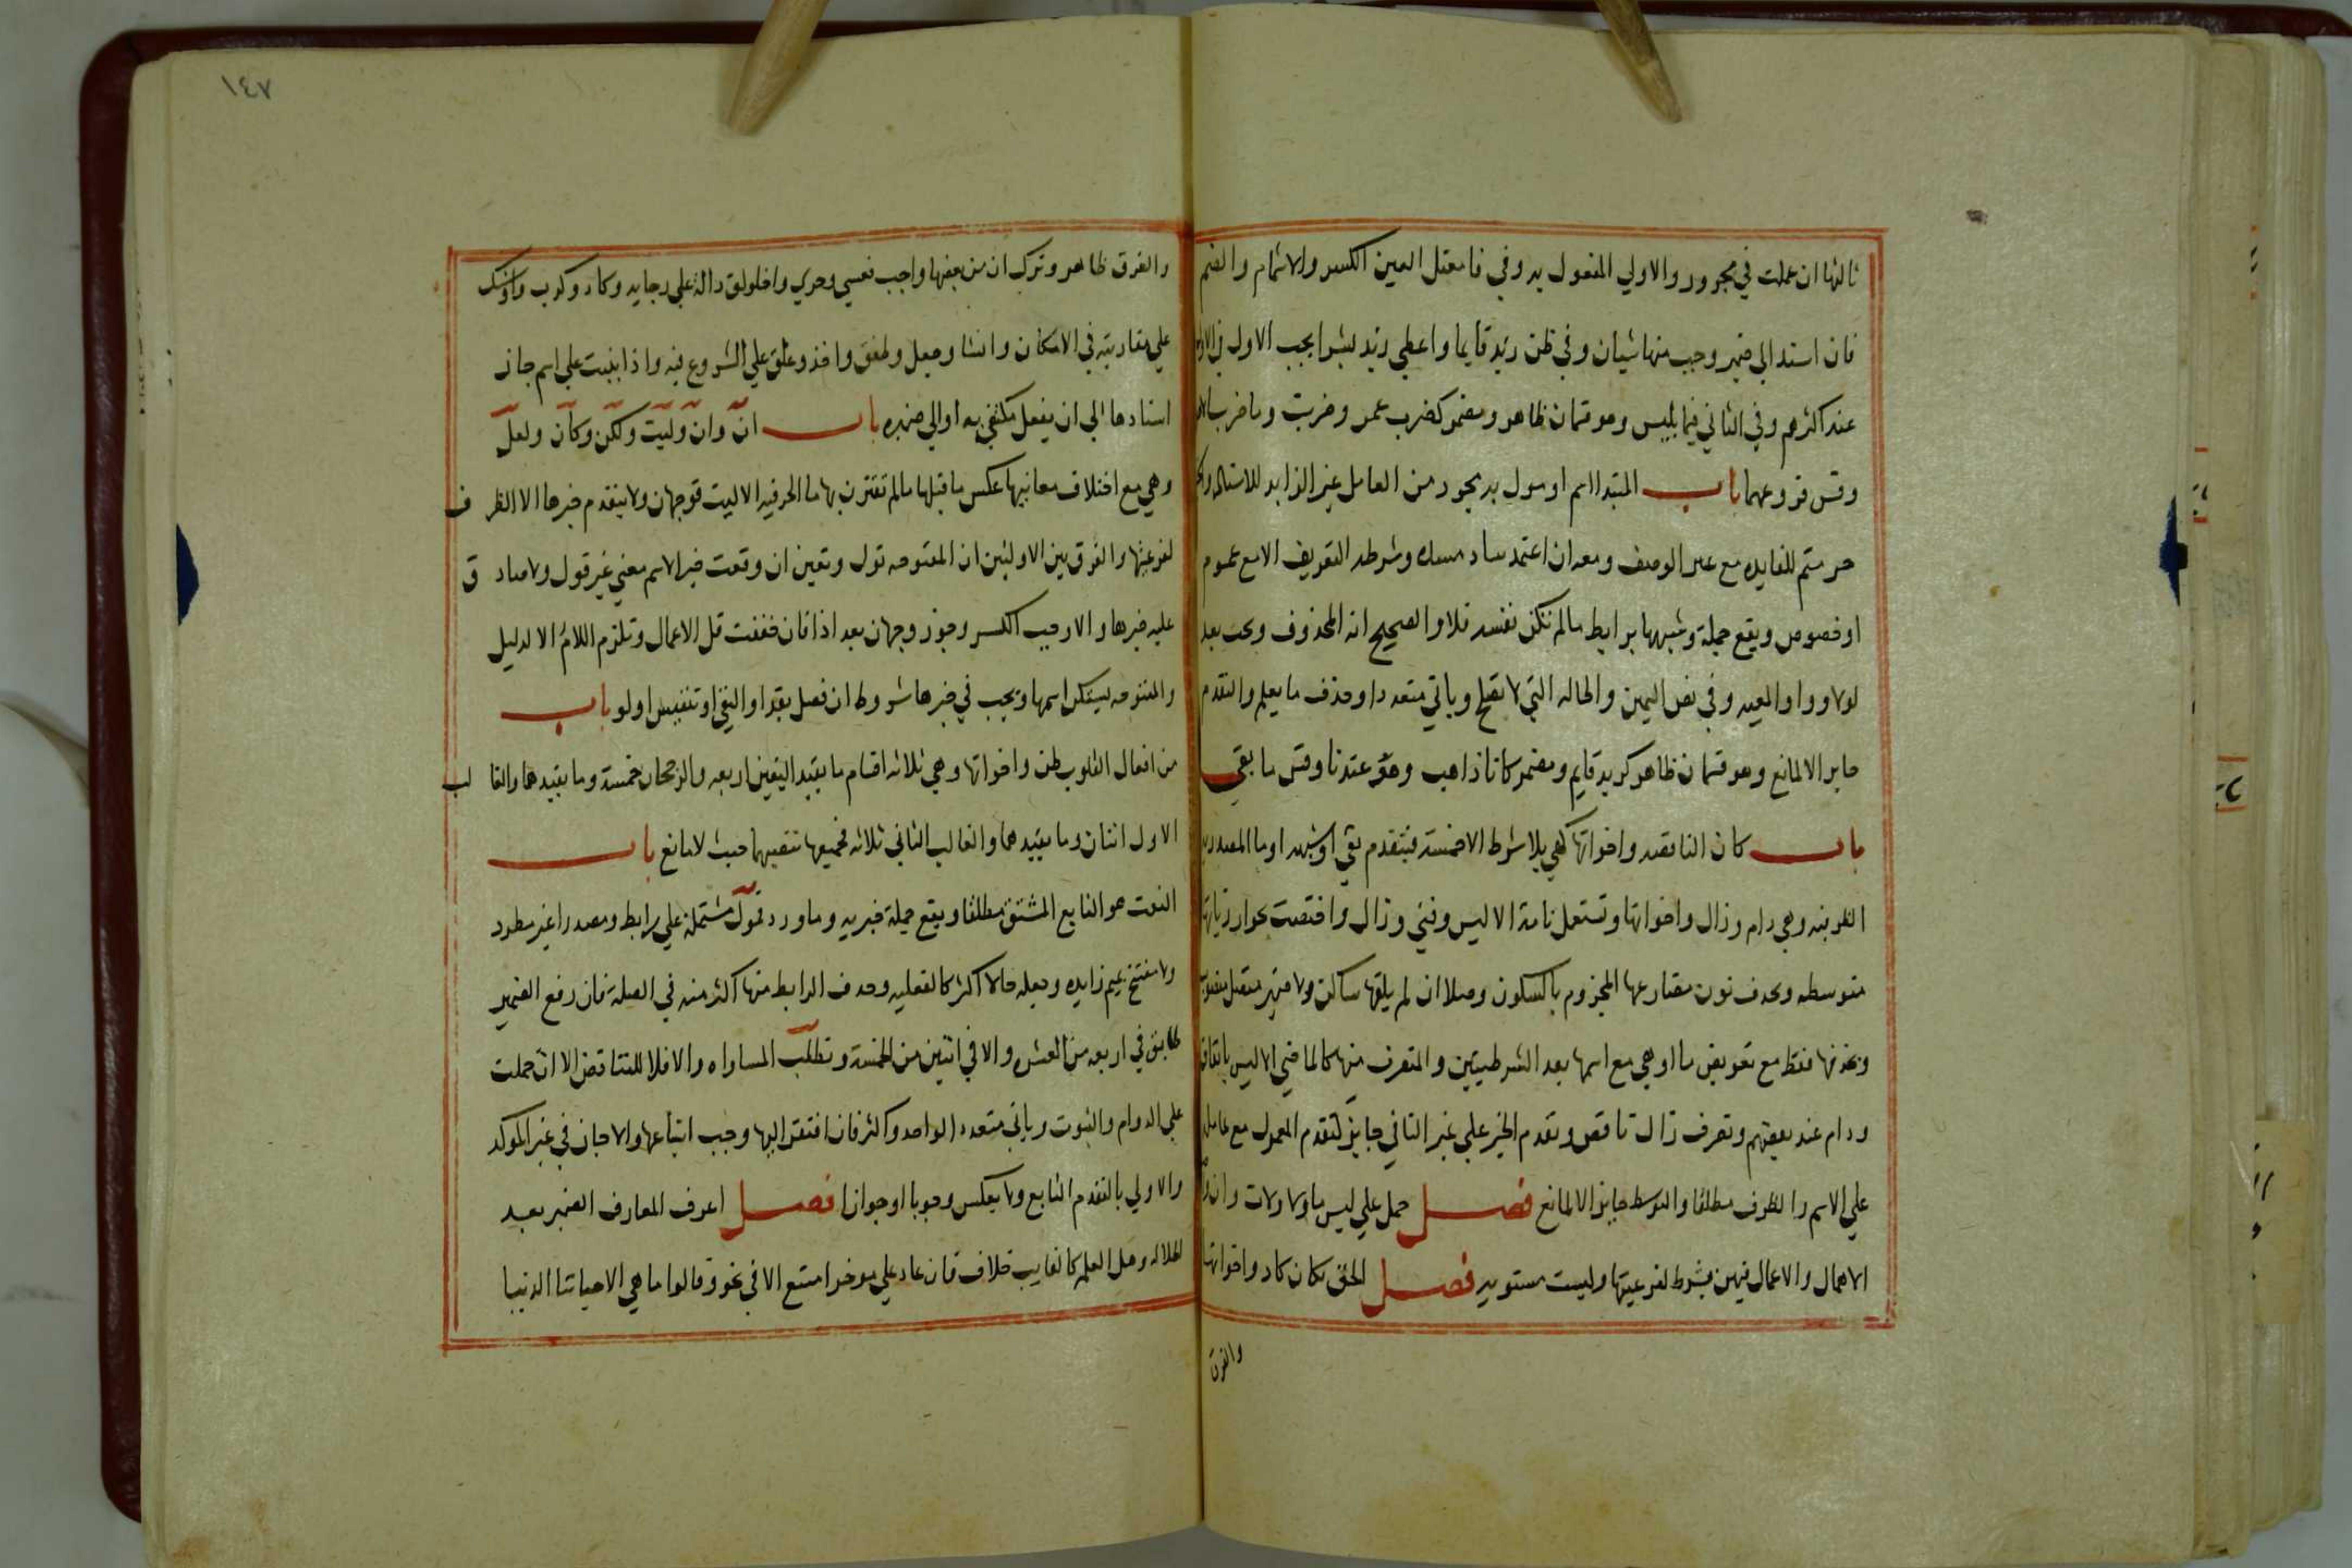 ثالثها ان عملت في مجرور والاولي المفعول به وفي فا معتل العين الكسر والاشمام والضم
فان اسند الي ضمير وجب منها شيان وفي ظن زيد قايما واعطي زيد بشرا يجب الاول في الاول
عند اكثرهم وفي الثاني فيما يلبس وهو قسمان ظاهر ومضمر كضرب عمر وضربت وما ضرب الا
وقس فروعهما باب المبتدا اسم او مول به مجرد من العامل غير الزايد للاسناد
متم للفايده مع غير الوصف ومعه ان اعتمد ساد مسده وشرطه التعريف الا مع عموم
او خصوص ويقع جملة وشبهها برابط ما لم تكن نفسه فلا والصحيح انه المحذوف ويجب بعد
لولا وواو المعيه وفي نص اليمين والحاله التي لا تصلح وياتي متعددا وحذف ما يعلم والتقدم
جايز الا لمانع وهو قسمان ظاهر كزيد قايم ومضمر كانا ذاهب وهو عندنا وقس ما بقي
باب كان الناقصه واخواتها كهي بلا شرط الا خمسة فبتقدم نفي او شبهه او ما المصدريه
الظرفيه وهي دام وزال واخواتها وتستعمل تامة الا ليس وفتي وزال واختصت بجواز زيادتها
متوسطه وبحذف نون مضارعها المجزوم بالسكون وصلا ان لم يلقها ساكن ولا ضمير متصل منصوب
وبحذفها فقط مع تعويض ما او هي مع اسمها بعد الشرطيتين والمتصرف منها كالماضي الا ليس باتفاق
ودام عند بعضهم وتصرف زال ناقص وتقدم الخبر علي غير الثاني جايز كتقدم المعمول مع عامل
علي الاسم والظرف مطلقا والتوسط جايز الا لمانع فصل حمل علي ليس ما ولا ولات وان
الاهمال والاعمال فيهن بشرط لفرعيتها وليست مستويه فصل الحق بكان كاد واخواتها
والفرق
١٤٧
والفرق ظاهر وترك ان من بعضها واجب فعسي وحري واخلولق دالة علي رجايه وكاد وكرب واوشك
علي مقاربته في الامكان وانشا وجعل وطفق واخذ وعلق علي الشروع فيه واذا بنيت علي اسم جاز
اسنادها الي ان يفعل مكتفي به او الي ضميره باب انّ وان وليت ولكن وكان ولعل
وهي مع اختلاف معانيها عكس ما قبلها ما لم تقترن بها ما الحرفيه الا ليت فوجهان ولا يتقدم خبرها الا الظرف
لفرعيتها والفرق بين الاولتين ان المفتوحه تول وتعين ان وقعت خبر الاسم معني غير قول ولا صادق
عليه خبرها والا وجب الكسر وجوز وجهان بعد اذا فان خففت قل الاعمال وتلزم اللام الا لدليل
والمفتوحه يستكن اسمها ويجب في خبرها شروط ان فصل بقد او النفي او تنفيس او لو باب
من افعال القلوب ظن واخواتها وهي ثلاثه اقسام ما يفيد اليقين اربعه والرجحان خمسة وما يفيدهما والغالب
الاول اثنان وما يفيدهما والغالب الثاني ثلاثه فجميعها تنصبهما حيث لا مانع باب
النعت هو التابع المشتق مطلقا ويقع جملة خبريه وما ورد مول مشتملة علي رابط ومصدرا غير مطرد
ولا مفتتح بميم زايده وجعله حالا اكثر كالفعليه وحذف الرابط منها اكثر منه في الصلة فان رفع الضمير
طابق في اربعه من العشره والا في اثنين من الخمسة وتطلب المساواه والا فلا للتناقض الا ان حملت
علي الدوام والثبوت وياتي متعددا لواحد واكثر فان افتقر اليها وجب اتباعها والا جاز في غير الموكد
والاولي بالتقدم التابع ولا يعكس وجوبا او جوازا فصل اعرف المعارف الضمير بعد
الجلاله وهل العلم كالغايب خلاف فان عاد علي موخر امتنع الا في نحو وقالوا ما هي الا حياتنا الدنيا